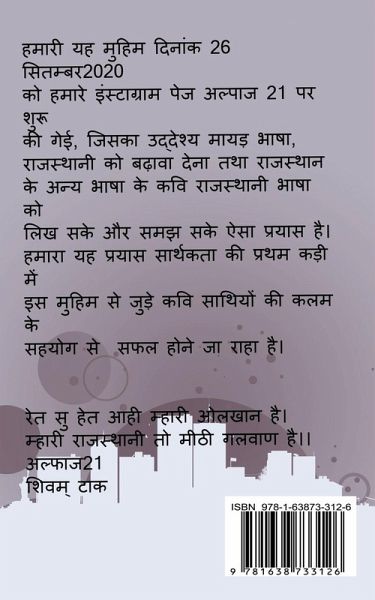 हमारी यह मुहिम दिनांक 26
सितम्बर2020
को हमारे इंस्टाग्राम पेज अल्पाज 21 पर
शुरू
की गेई, जिसका उद्देश्य मायड़ भाषा,
राजस्थानी को बढ़ावा देना तथा राजस्थान
के अन्य भाषा के कवि राजस्थानी भाषा
को
लिख सके और समझ सके ऐसा प्रयास है।
हमारा यह प्रयास सार्थकता की प्रथम कड़ी
में
इस मुहिम से जुड़े कवि साथियों की कलम
के
सहयोग से सफल होने जा राहा है।
रेत सु हेत आही म्हारी ओलखान है।
म्हारी राजस्थानी तो मीठी गलवाण है।।
अल्फाज21
शिवम् टाक
ISBN 978-1-63873-312-6
9 781638 733126